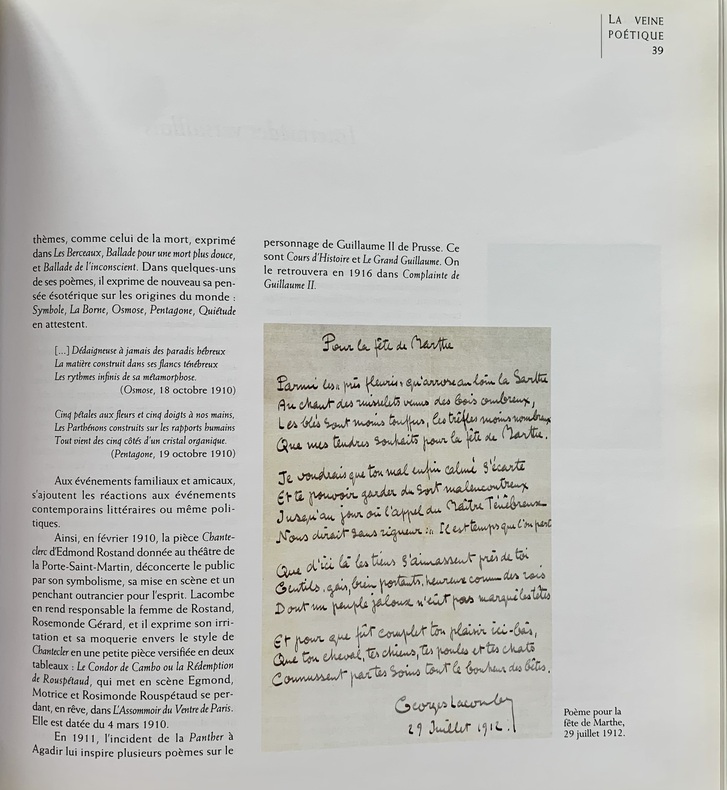 LA VEINE
POÉTIQUE
39
thèmes, comme celui de la mort, exprimé
dans Les Berceaux, Ballade pour une mort plus douce,
et Ballade de l'inconscient. Dans quelques-uns
de ses poèmes, il exprime de nouveau sa pen-
sée ésotérique sur les origines du monde :
Symbole, La Borne, Osmose, Pentagone, Quiétude
en attestent.
[...] Dédaigneuse à jamais des paradis hébreux
La matière construit dans ses flancs ténébreux
Les rythmes infinis de sa métamorphose.
(Osmose, 18 octobre 1910)
Cinq pétales aux fleurs et cinq doigts à nos mains,
Les Parthénons construits sur les rapports humains
Tout vient des cinq côtés d'un cristal organique.
(Pentagone, 19 octobre 1910)
Aux événements familiaux et amicaux,
s'ajoutent les réactions aux événements
contemporains littéraires ou même poli-
tiques.
Ainsi, en février 1910, la pièce Chante-
clerc d'Edmond Rostand donnée au théâtre de
la Porte-Saint-Martin, déconcerte le public
par son symbolisme, sa mise en scène et un
penchant outrancier pour l'esprit. Lacombe
en rend responsable la femme de Rostand,
Rosemonde Gérard, et il exprime son irri-
tation et sa moquerie envers le style de
Chantecler en une petite pièce versifiée en deux
tableaux : Le Condor de Cambo ou la Rédemption
de Rouspétaud, qui met en scène Egmond,
Motrice et Rosimonde Rouspétaud se per-
dant, en rêve, dans L'Assommoir du Ventre de Paris.
Elle est datée du 4 mars 1910.
En 1911, l'incident de la Panther à
Agadir lui inspire plusieurs poèmes sur le
personnage de Guillaume II de Prusse. Ce
sont Cours d'Histoire et Le Grand Guillaume. On
le retrouvera en 1916 dans Complainte de
Guillaume II.
Pour la fête de Marthe
Parmi les prés fleuris, qu'arrose au loin la Sarthe
Au chant des ruisselets venus des bois ombreux,
Les blés sont moins touffus, les trèfles moins nombreux
Que mes tendres souhaits pour la fête de Marthe.
Je voudrais que ton mal enfin calmé s'écarte
Et te pouvoir garder du sort malencontreux
Jusqu'au jour où l'appel du Maître Ténébreux
Nous dirait sans rigueur : Il est temps que l'on parte
Que d'ici là les tiens s'aimassent près de toi
Gentils, gais, bien portants, heureux comme des rois
Dont un peuple jaloux n'eût pas marqué les têtes
Et pour que fût complet ton plaisir ici-bas,
Que ton cheval, tes chiens, tes poules et tes chats
Connussent par tes soins tout le bonheur des bêtes.
Georges Lacombe
29 Juillet 1912.
Poème pour la
fête de Marthe,
29 juillet 1912.